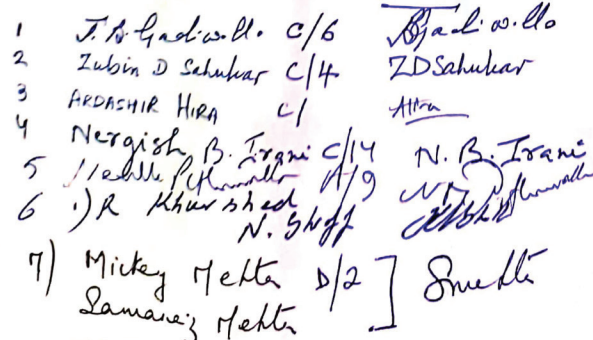 1 J. B. Gadiwalla C/6
2 Zubin D Sahukar C/4 ZDSahukar
3 ARDASHIR HIRA C/
4 Nergish B. Irani C/14 N. B. Irani
5 A/9
6 R Khurshed
N. Shroff
7) Mickey Mehta D/2 ] Smehta
Mehta